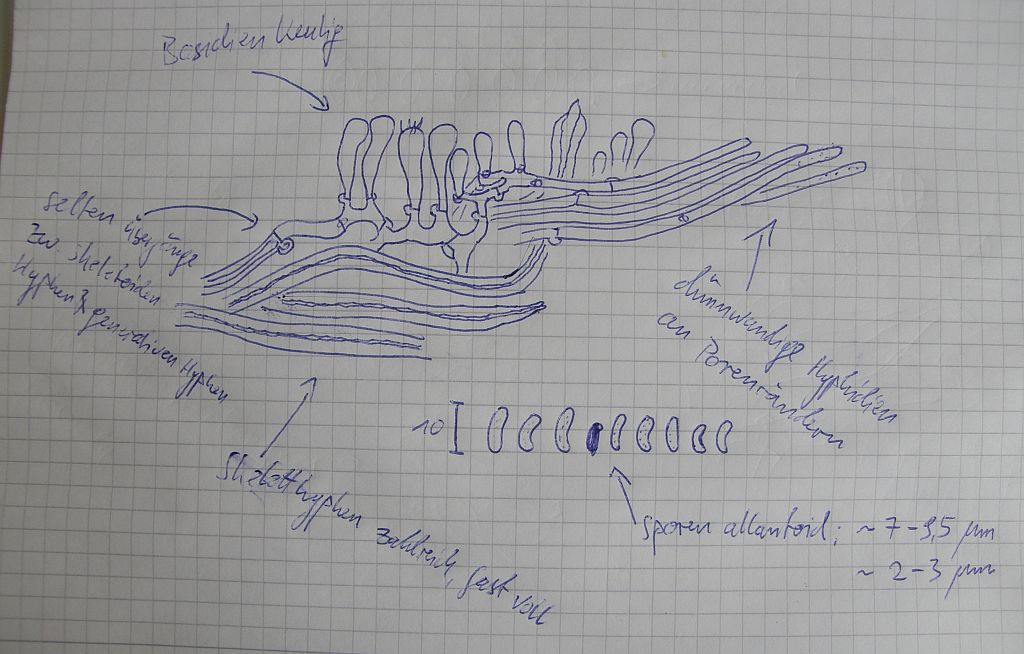 Basidien keulig
selten übergänge
zw. skeletoiden
Hyphen & generativen Hyphen
dünnwandige Hyphidien
an Porenrändern
10
Skeletthyphen zahlreich, fast voll
Sporen allantoid; ~ 7-9,5 µm
~ 2-3 µm